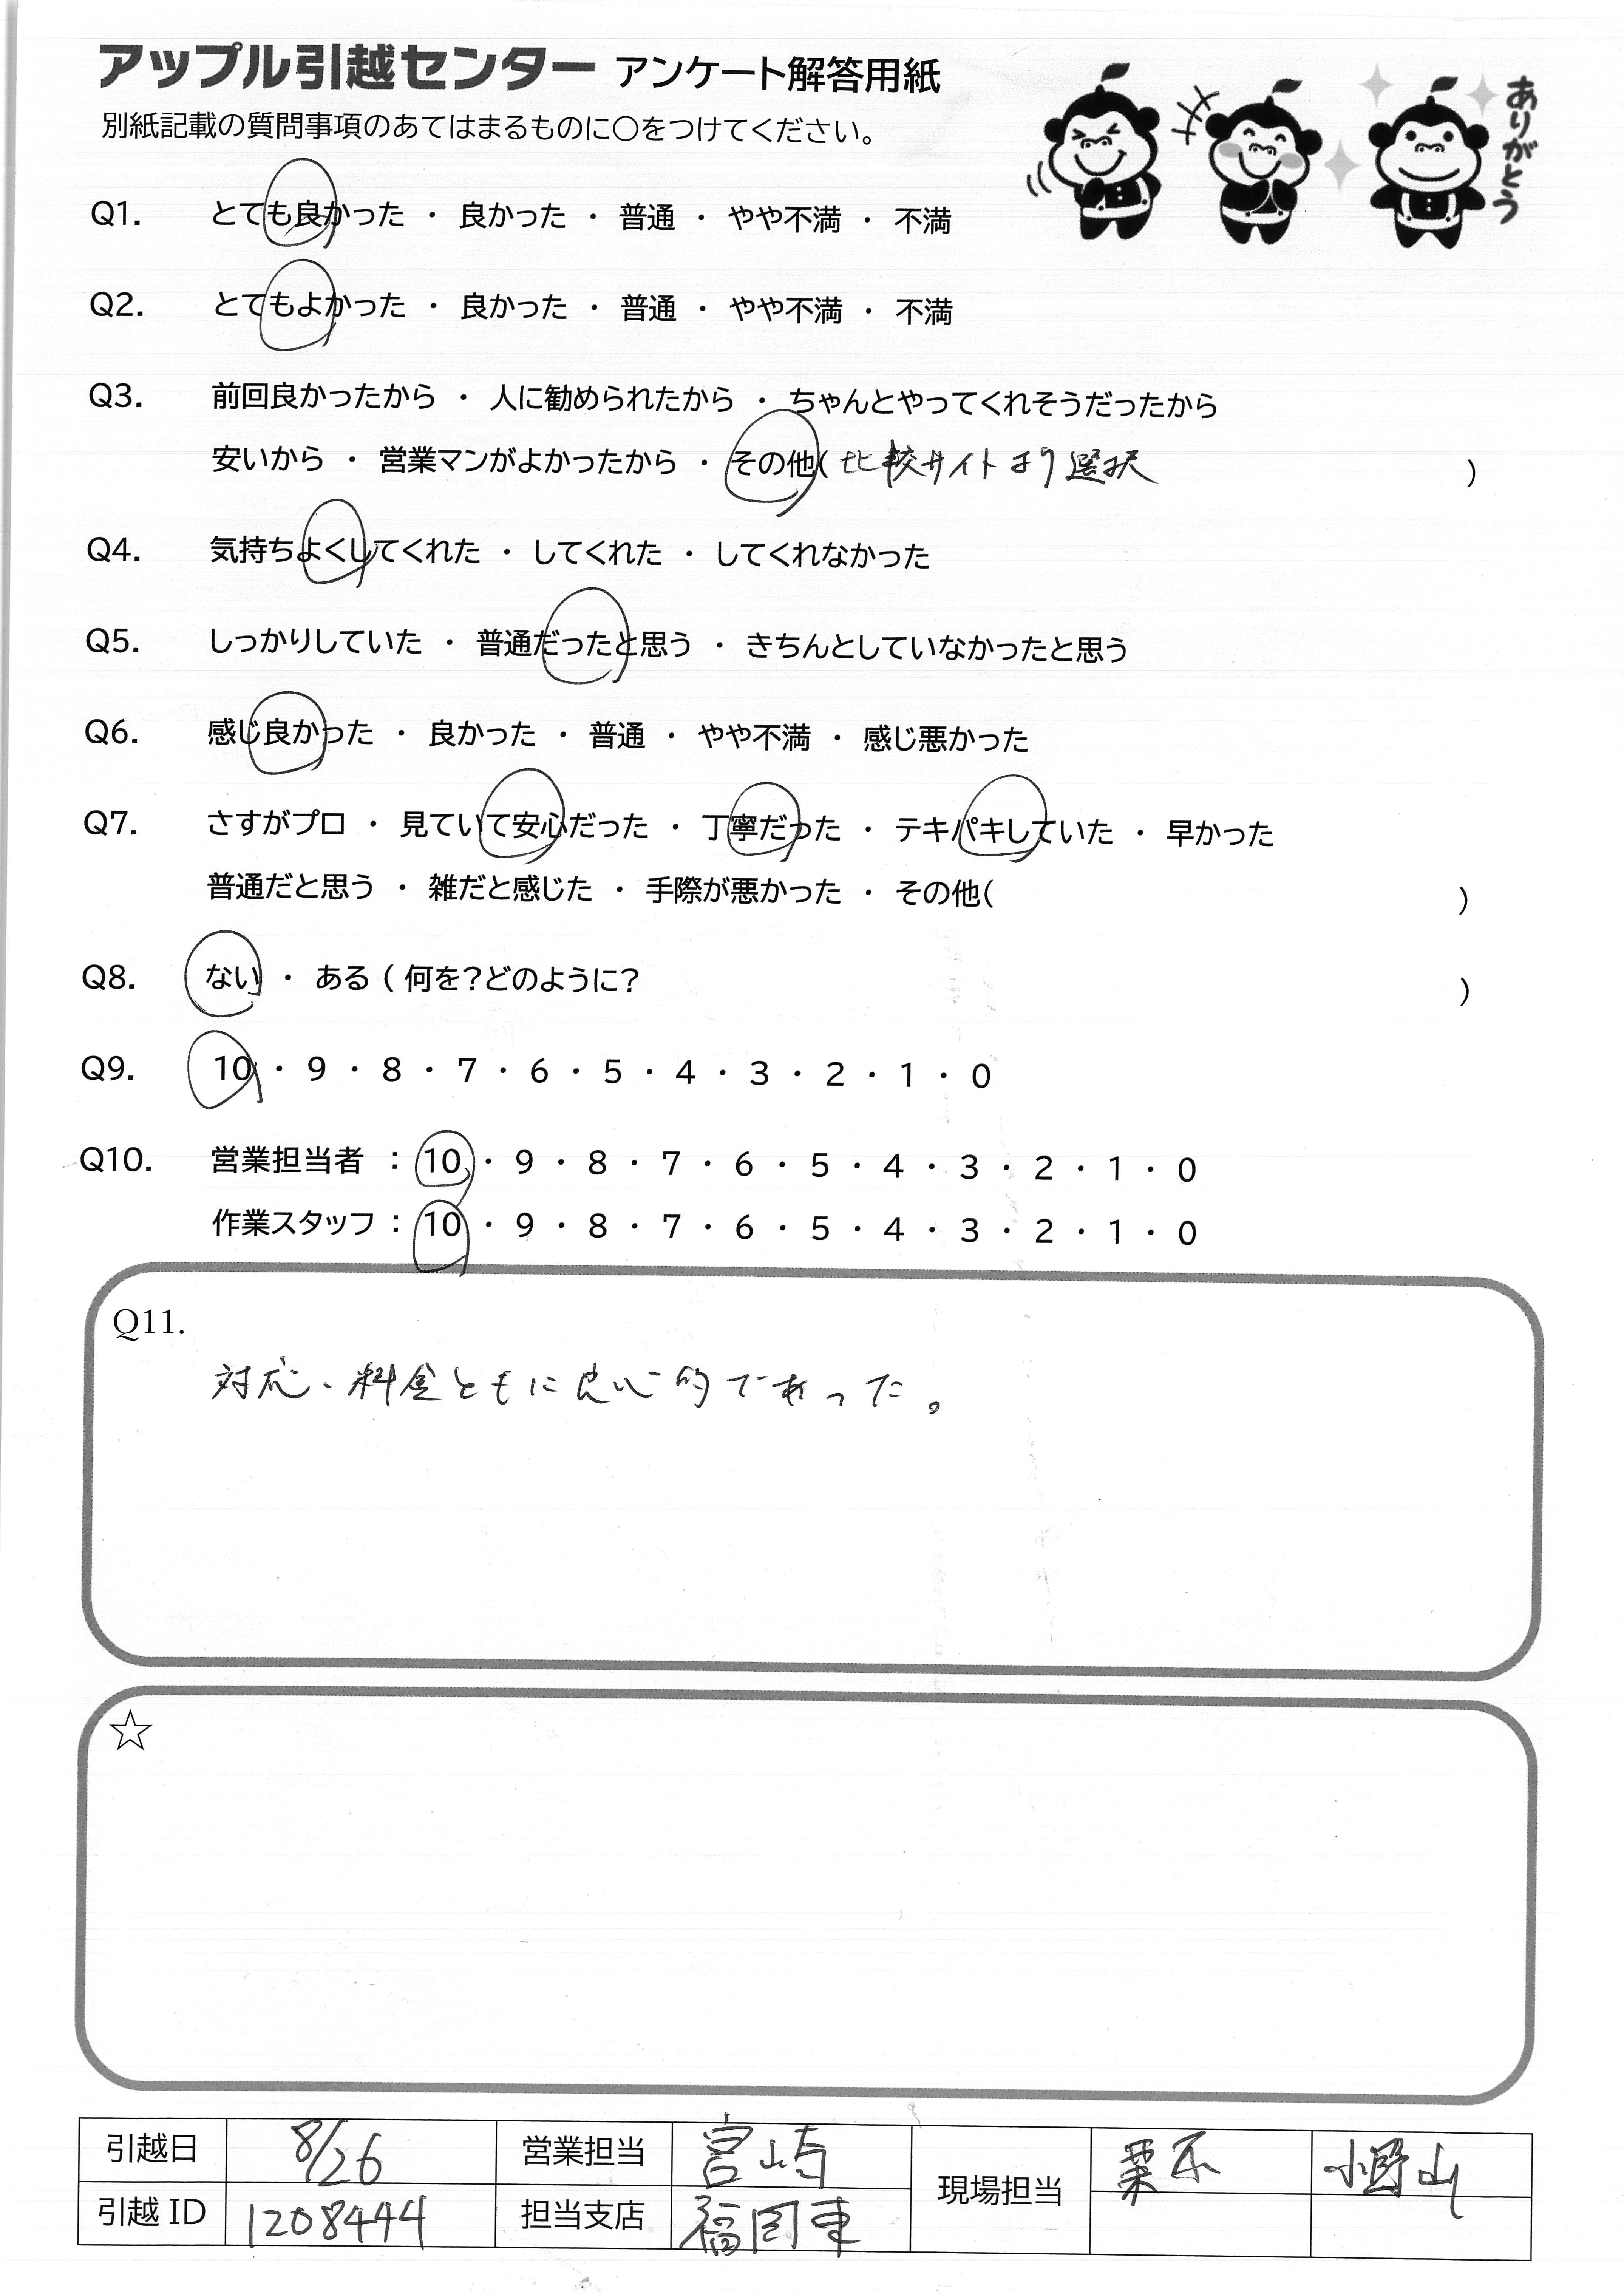 アップル引越センター アンケート解答用紙
別紙記載の質問事項のあてはまるものに○をつけてください。
ありがとう
Q1. とても良かった ・ 良かった ・ 普通 ・ やや不満 ・ 不満
Q2. とてもよかった ・ 良かった ・ 普通 ・ やや不満 ・ 不満
Q3. 前回良かったから ・ 人に勧められたから ・ ちゃんとやってくれそうだったから
安いから ・ 営業マンがよかったから ・ その他( 比較サイトより選択 )
Q4. 気持ちよくしてくれた ・ してくれた ・ してくれなかった
Q5. しっかりしていた ・ 普通だったと思う ・ きちんとしていなかったと思う
Q6. 感じ良かった ・ 良かった ・ 普通 ・ やや不満 ・ 感じ悪かった
Q7. さすがプロ ・ 見ていて安心だった ・ 丁寧だった ・ テキパキしていた ・ 早かった
普通だと思う ・ 雑だと感じた ・ 手際が悪かった ・ その他( )
Q8. ない ・ ある ( 何を?どのように? )
Q9. 10 ・ 9 ・ 8 ・ 7 ・ 6 ・ 5 ・ 4 ・ 3 ・ 2 ・ 1 ・ 0
Q10. 営業担当者 : 10 ・ 9 ・ 8 ・ 7 ・ 6 ・ 5 ・ 4 ・ 3 ・ 2 ・ 1 ・ 0
作業スタッフ : 10 ・ 9 ・ 8 ・ 7 ・ 6 ・ 5 ・ 4 ・ 3 ・ 2 ・ 1 ・ 0
Q11.
対応・料金ともに良心的であった。
☆
引越日 8/26 営業担当 宮崎 現場担当 小野山
引越 ID 1208444 担当支店 福岡東